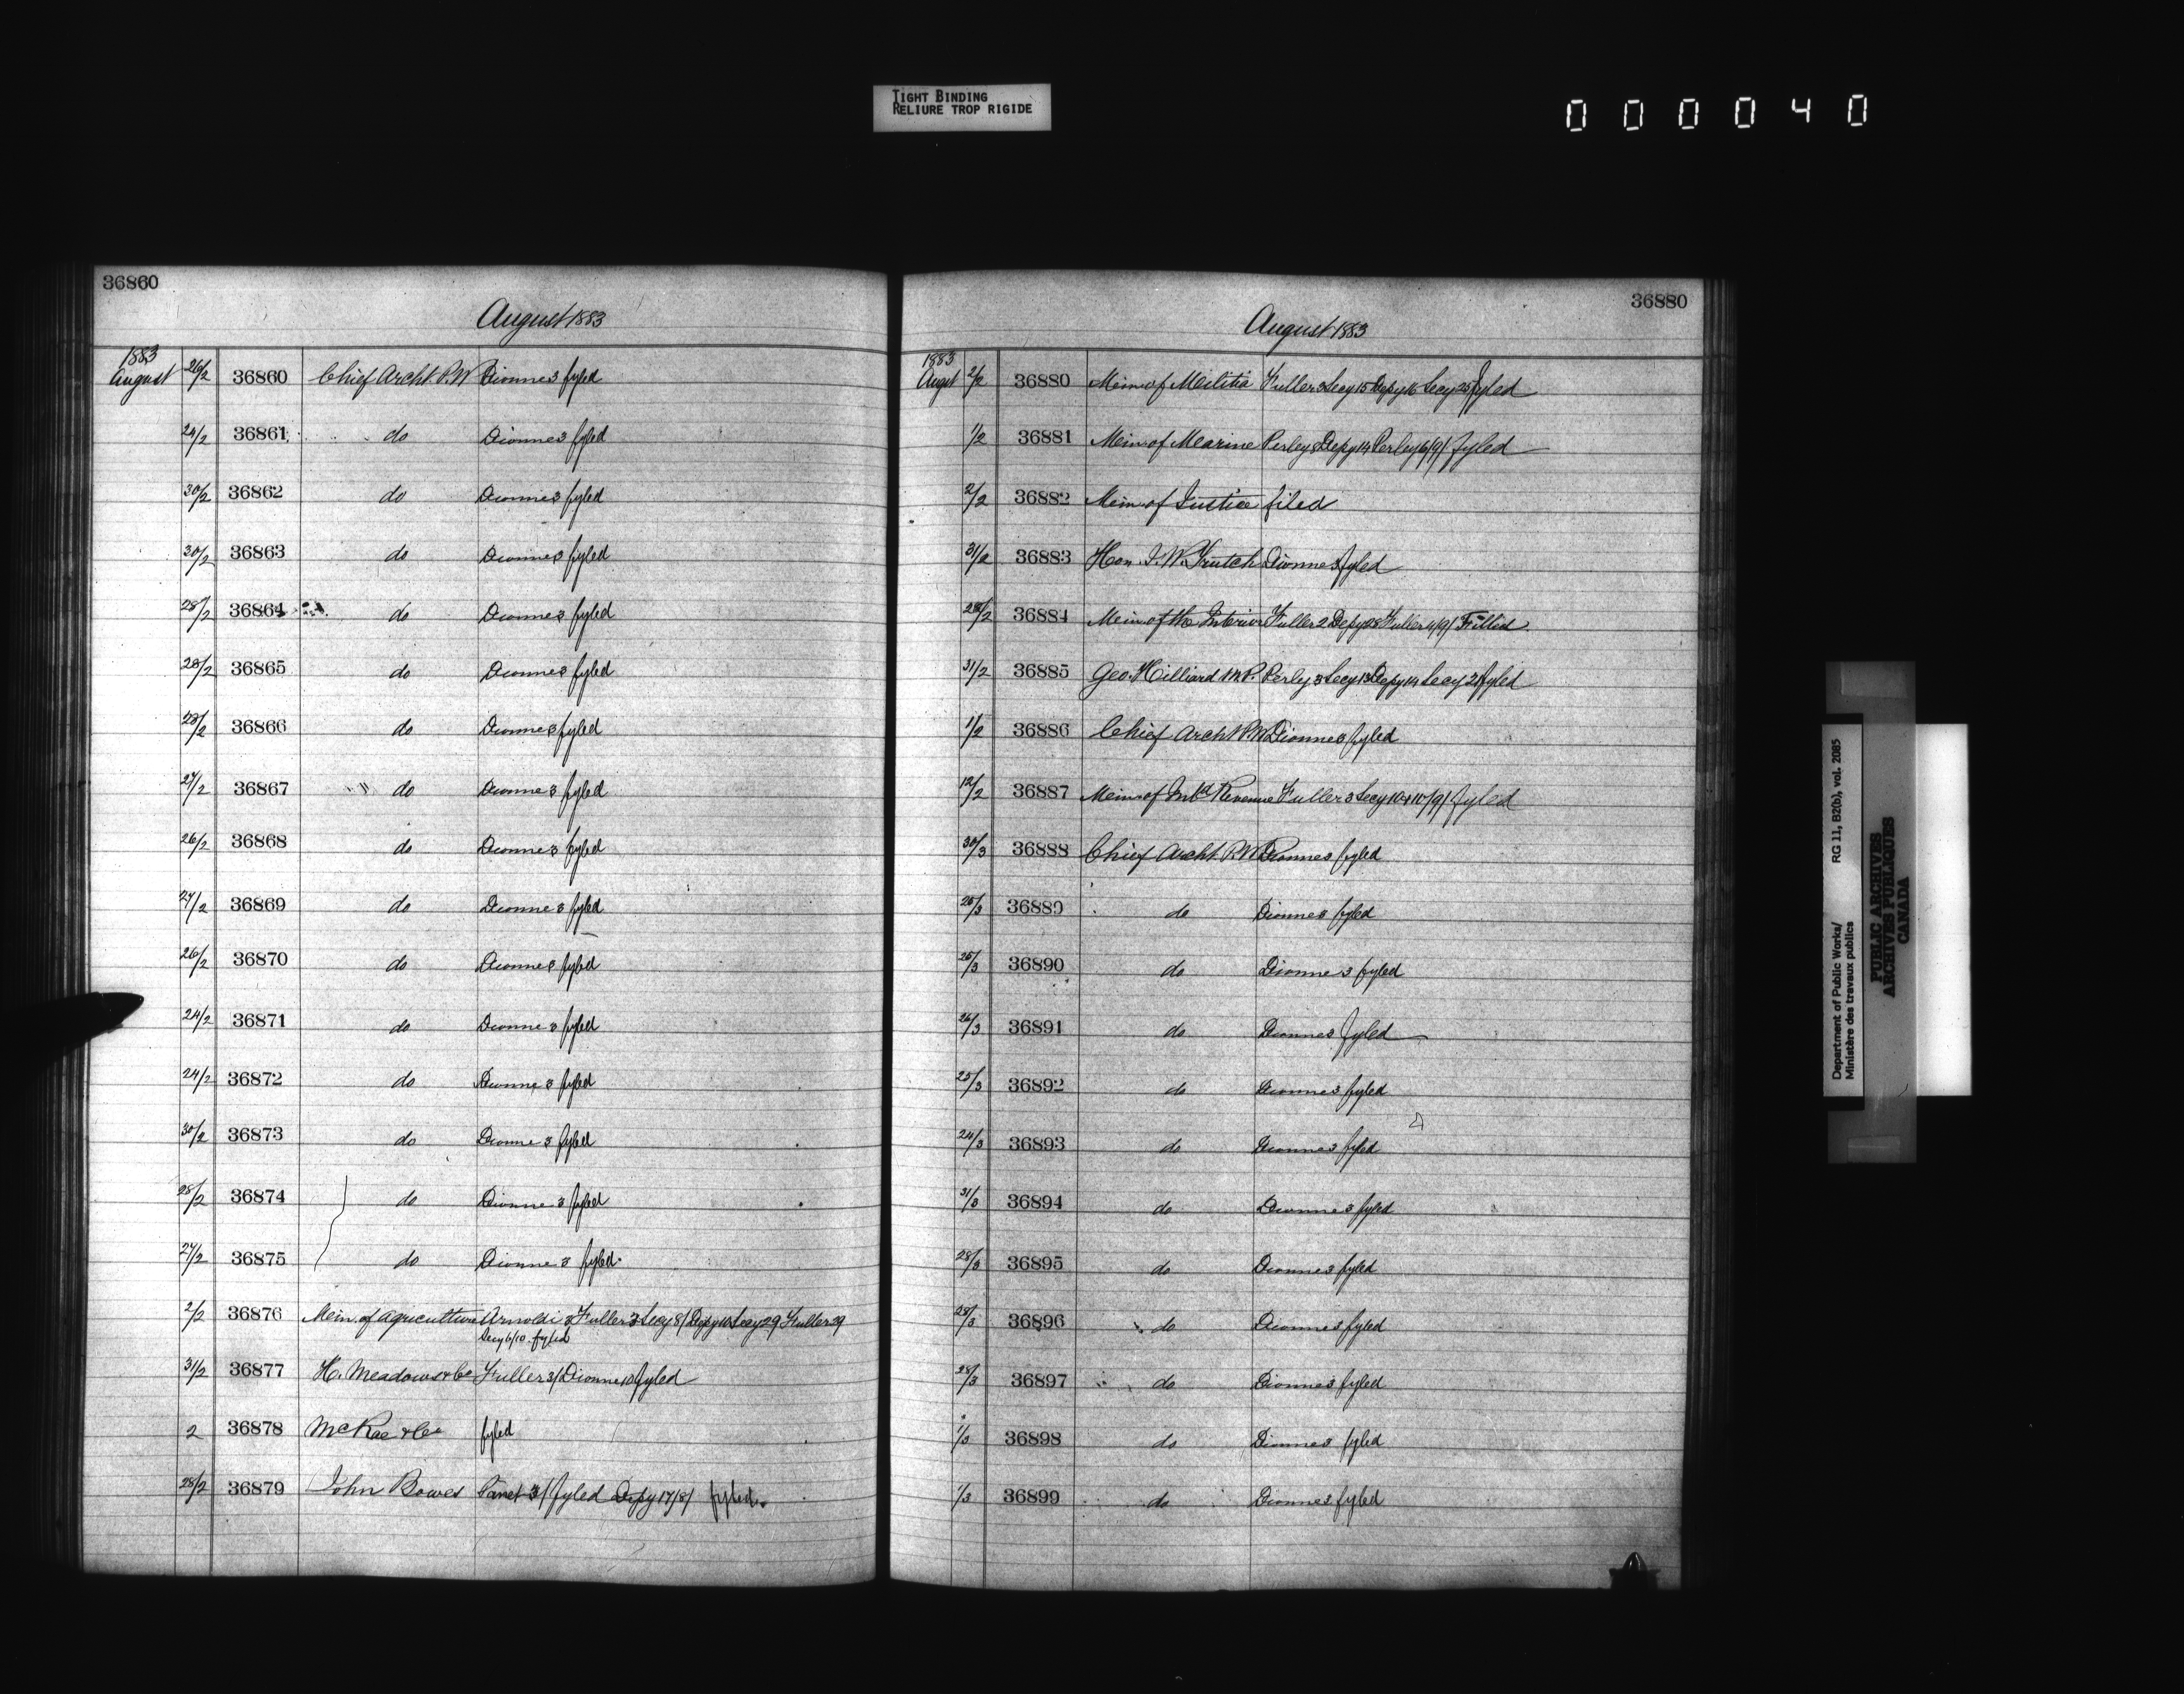 TIGHT BINDING
RELIURE TROP RIGIDE
000040
36860
August 1883
1883
August 26/2 36860 Chief Archt. P.W Dionne 3 fyled
24/2 36861 do Dionne 3 fyled
30/2 36862 do Dionne 3 fyled
30/2 36863 do Dionne 3 fyled
28/2 36864 do Dionne 3 fyled
28/2 36865 do Dionne 3 fyled
28/2 36866 do Dionne 3 fyled
27/2 36867 " do Dionne 3 fyled
26/2 36868 do Dionne 3 fyled
27/2 36869 do Dionne 3 fyled
26/2 36870 do Dionne 3 fyled
24/2 36871 do Dionne 3 fyled
24/2 36872 do Dionne 3 fyled
30/2 36873 do Dionne 3 fyled
28/2 36874 do Dionne 3 fyled
27/2 36875 do Dionne 3 fyled
2/2 36876 Min. of Agriculture Arnoldi 3 Fuller 3 Secy 8/ Depy Secy 29 Fuller 29
Secy 6/10 fyled
31/2 36877 H. Meadows & Co Fuller 3/ Dionne 10 fyled
2 36878 McRae & Co fyled
28/2 36879 John Bowes 3/ fyled Depy 17/8/ fyled.
36880
August 1883
1883
August 2/2 36880 Min. of Militia Fuller 3 Secy 15 Depy 16 Secy 25 fyled
1/2 36881 Min. of Marine Perley 8 Depy 14 Perley 6/9/ fyled
2/2 36882 Min. of Justice filed
31/2 36883 Hon. J. W. Trutch Dionne 3 fyled
28/2 36884 Min. of the Interior Fuller 2 Depy 28 Fuller 4/9/ Filled
31/2 36885 Geo. Hilliard M.P. Perly 3 Secy 13 Depy 14 Secy 21 fyled
1/2 36886 Chief Archt P.W Dionne 3 fyled
12/2 36887 Min. of Inld Revenue Fuller 3 Secy 10 & 10/9/ fyled
30/3 36888 Chief Archt P.W Dionne 3 fyled
25/3 36889 do Dionne 3 fyled
25/3 36890 do Dionne 3 fyled
26/3 36891 do Dionne 3 fyled
25/3 36892 do Dionne 3 fyled
24/3 36893 do Dionne 3 fyled
31/3 36894 do Dionne 3 fyled
28/3 36895 do Dionne 3 fyled
28/3 36896 do Dionne 3 fyled
28/3 36897 do Dionne 3 fyled
1/3 36898 do Dionne 3 fyled
1/3 36899 do Dionne 3 fyled
Department of Public Works/ RG 11, B2(b), vol. 2085
Ministère des travaux publics
PUBLIC ARCHIVES
ARCHIVES PUBLIQUES
CANADA